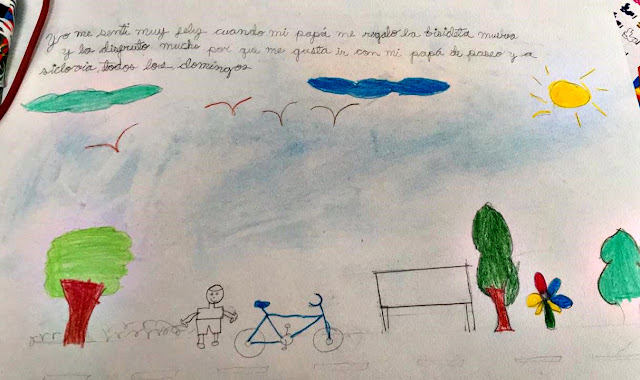 Yo me senti muy feliz cuando mi papá me regalo la bisicleta nueva
y la disfruto mucho por que me gusta ir con mi papá de paseo y a
siclovia todos los domingos